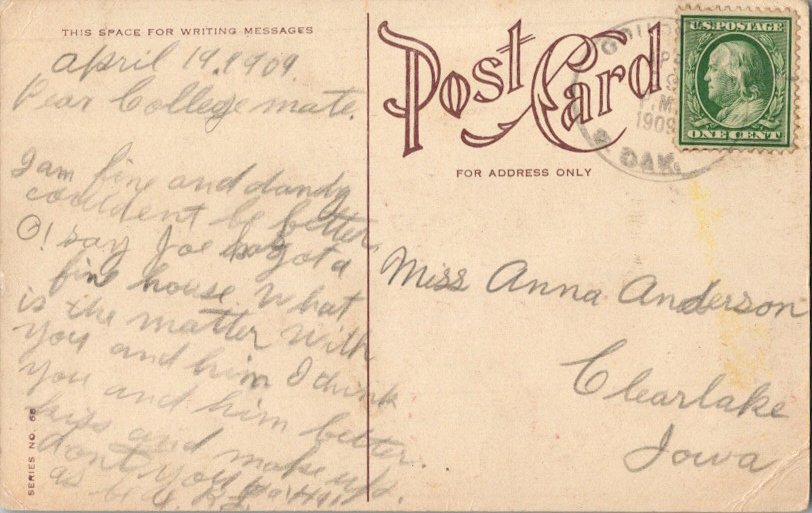 THIS SPACE FOR WRITING MESSAGES
April 19, 1909.
Dear College mate.
I am fine and dandy
couldent be better,
O! say Joe has got a
fine house. What
is the matter with
you and him I think
you and him better
kiss and make up.
dont you
as
SERIES NO. 68
Post Card
FOR ADDRESS ONLY
1909
DAK.
U.S. POSTAGE
ONE CENT
Miss Anna Anderson
Clearlake
Iowa